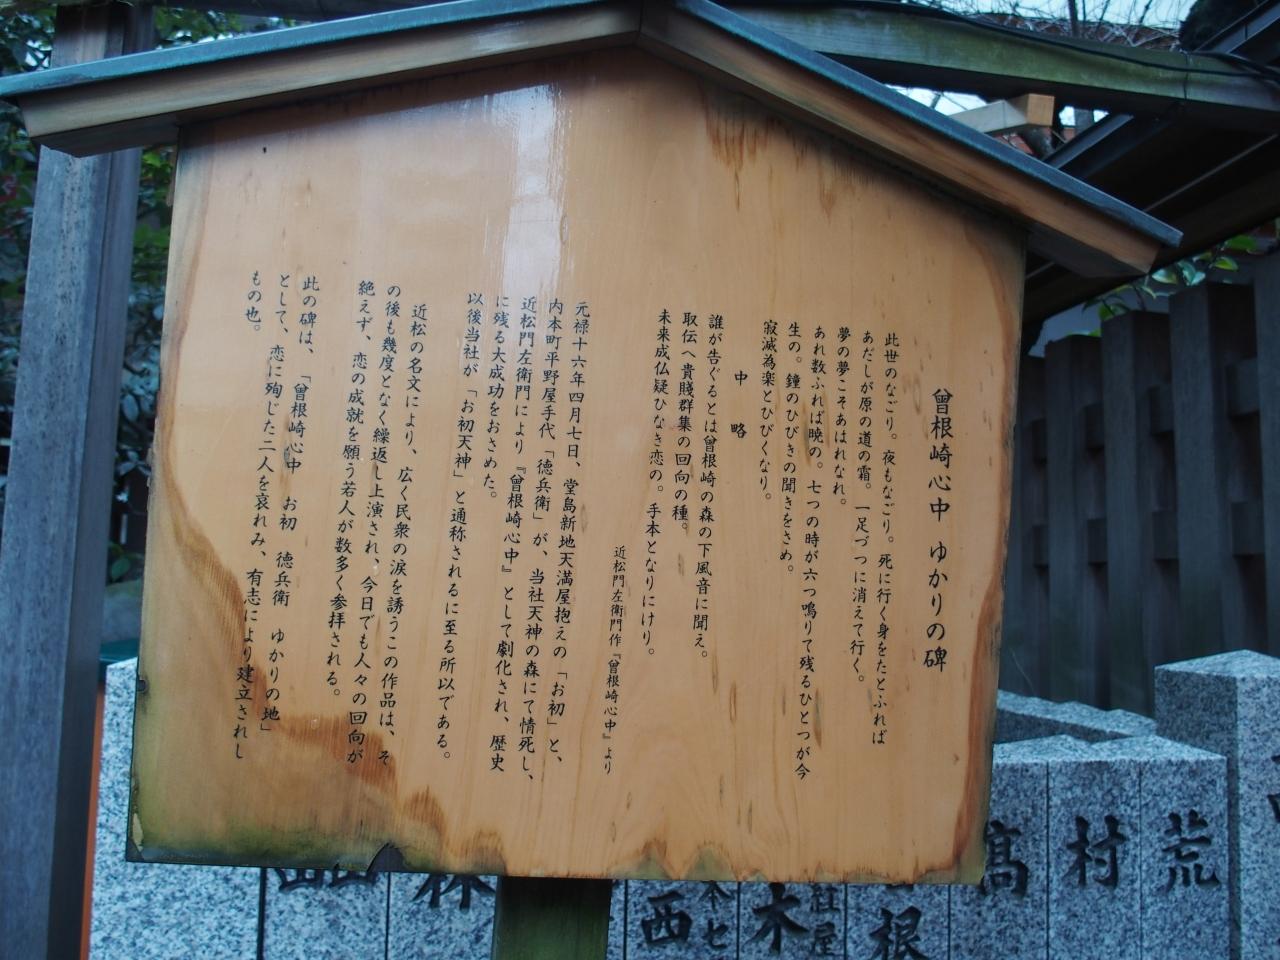 曾根崎心中 ゆかりの碑
此世のなごり。夜もなごり。死に行く身をたとふれば
あだしが原の道の霜。一足づつに消えて行く。
夢の夢こそあはれなれ。
あれ数ふれば暁の。七つの時が六つ鳴りて残るひとつが今
生の。鐘のひびきの聞きをさめ。
寂滅為楽とひびくなり。
中略
誰が告ぐるとは曾根崎の森の下風音に聞え。
取伝へ貴賤群集の回向の種。
未来成仏疑ひなき恋の。手本となりにけり。
近松門左衛門作『曾根崎心中』より
元禄十六年四月七日、堂島新地天満屋抱えの「お初」と、
内本町平野屋手代「徳兵衛」が、当社天神の森にて情死し、
近松門左衛門により『曾根崎心中』として劇化され、歴史
に残る大成功をおさめた。
以後当社が「お初天神」と通称されるに至る所以である。
近松の名文により、広く民衆の涙を誘うこの作品は、そ
の後も幾度となく繰返し上演され、今日でも人々の回向が
絶えず、恋の成就を願う若人が数多く参拝される。
此の碑は、「曾根崎心中 お初 徳兵衛 ゆかりの地」
として、恋に殉じた二人を哀れみ、有志により建立されし
もの也。
荒
村
髙
根
木
西
森